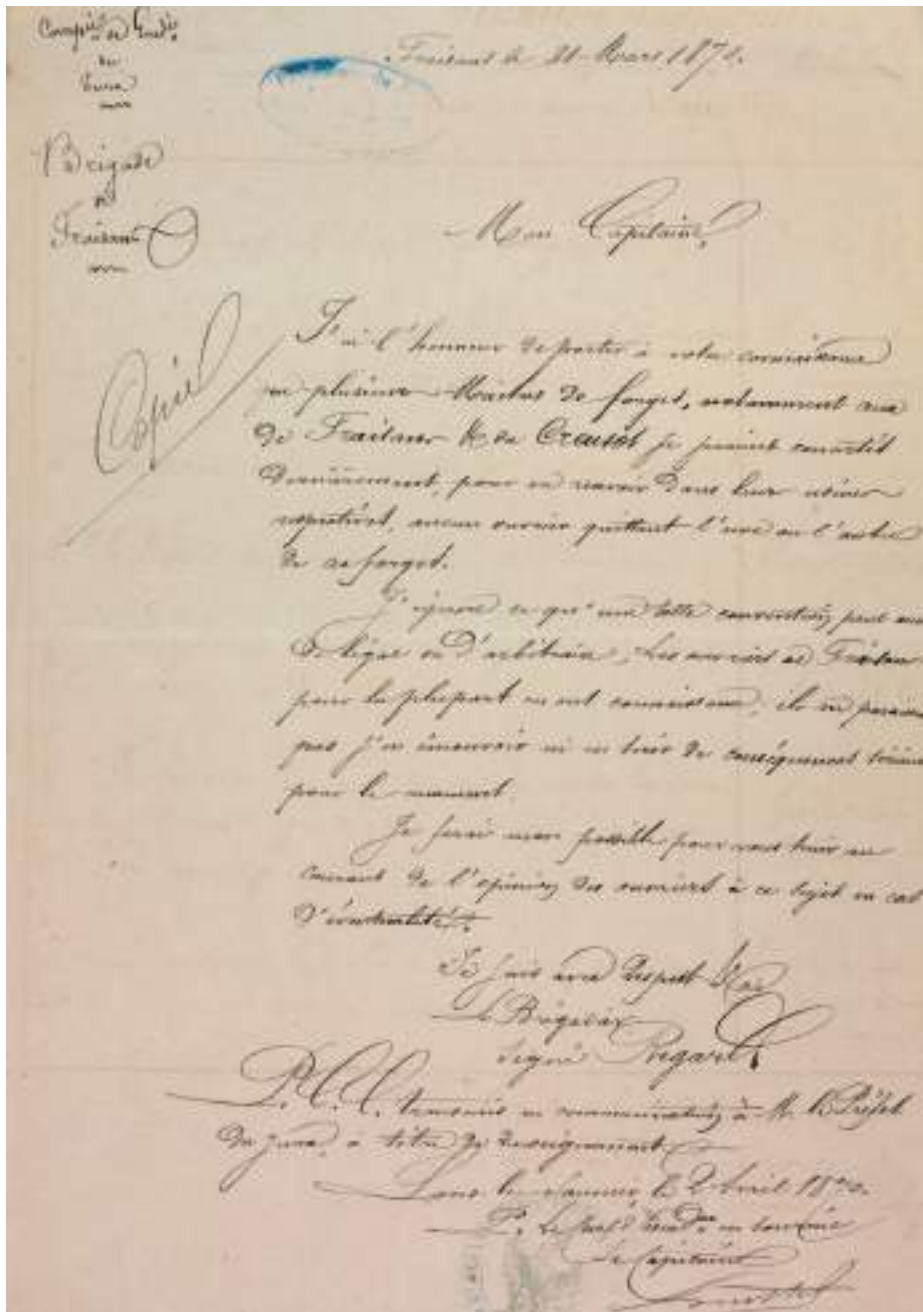 Compie de Gendie
du
Jura
Brigade
de
Fraisans
Fraisans le 31 Mars 1870.
Mon Capitaine,
Copie
J'ai l'honneur de porter à votre connaissance
que plusieurs Maitres de forges, notamment ceux
de Fraisans & du Creusot se seraient concertés
dernièrement, pour ne recevoir dans leurs usines
respectives, aucun ouvrier quittant l'une ou l'autre
de ces forges.
J'ignore ce qu'une telle convention peut avoir
de légal ou d'arbitraire; Les ouvriers de Fraisans
pour la plupart en ont connaissance, ils ne paraissent
pas s'en émouvoir ni en tirer de conséquences
pour le moment.
Je ferai mon possible pour vous tenir au
courant de l'opinion des ouvriers à ce sujet en cas
d'éventualité.
Je suis avec respect &a
Le Brigadier
Signé Regard
P. C. C. transmis en communication à M. le Préfet
du Jura, à titre de renseignement
Lons le Saunier, le 2 Avril 1870.
P. Le Chef d'Escadon en tournée
Le Capitaine